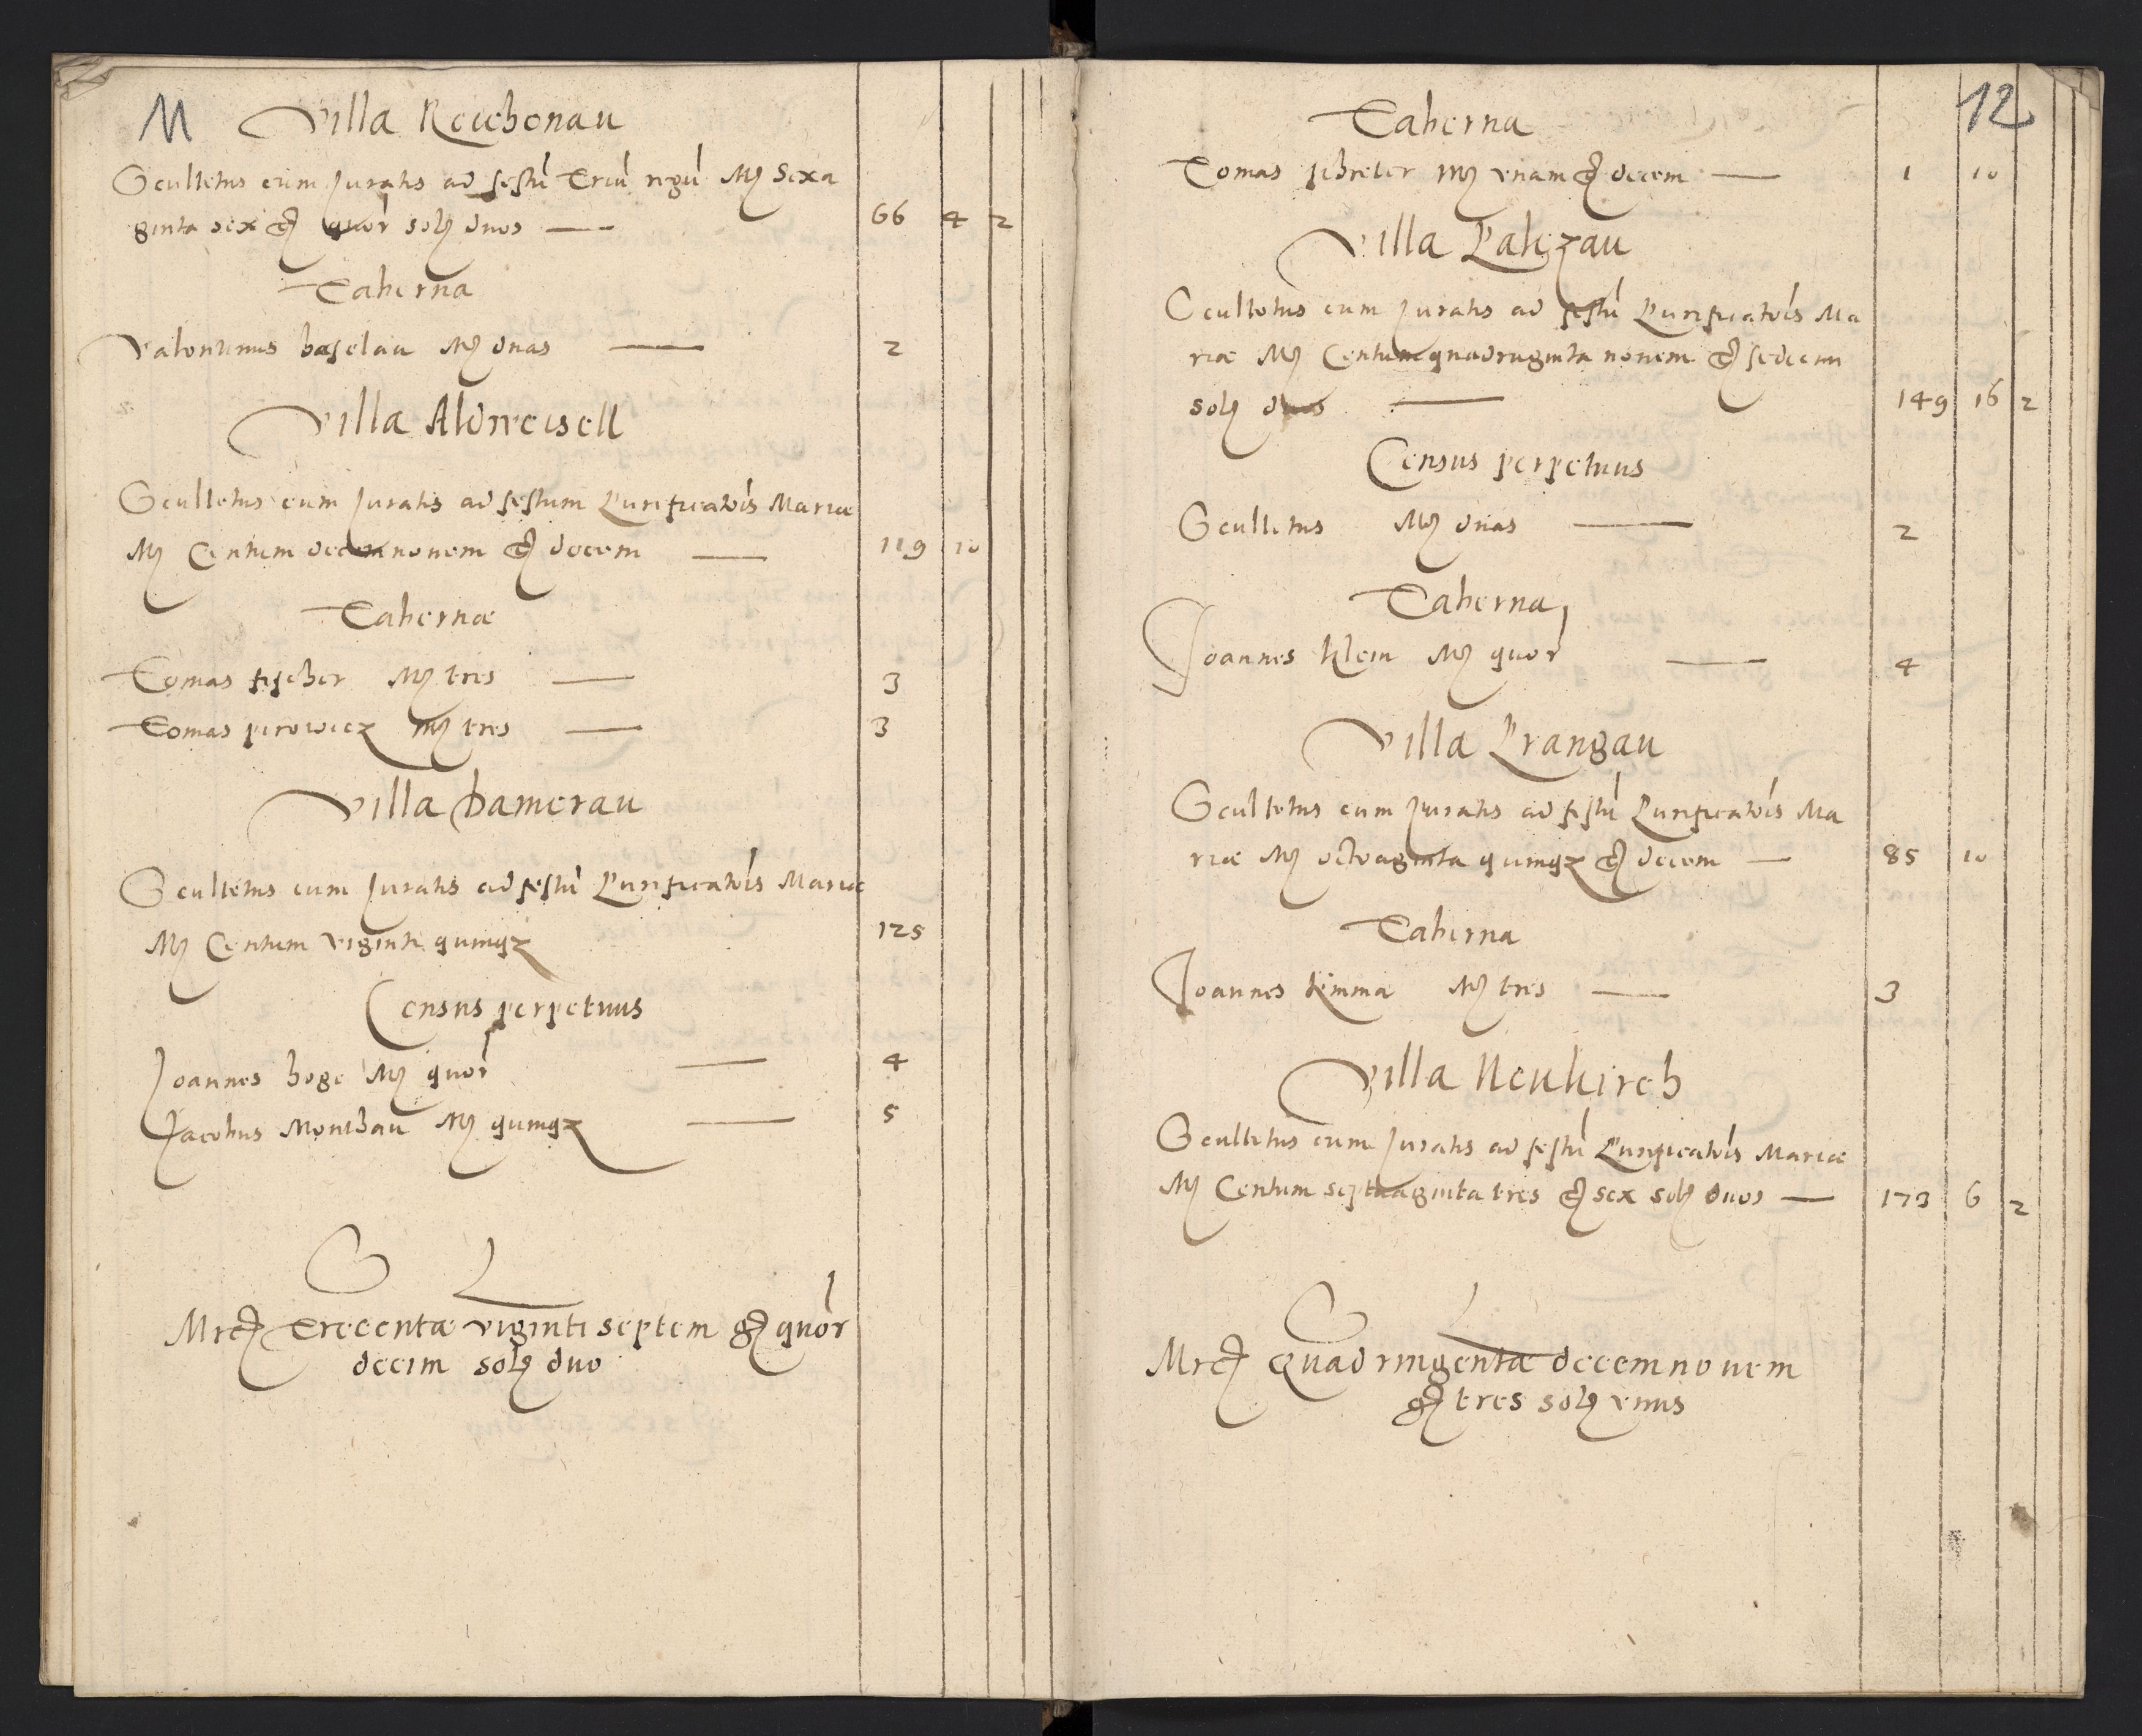 11
Villa Reichenau
Scultetus cum Juratis ad festũ Triũ regũ M Sexa
ginta sex g quor solz duos — 66 4 2
Taberna
Valentinus baselau M duas — 2
Villa Aldtweisell
Scultetus cum Juratis ad festum Purificatõis Mariæ
M Centum decem nonem g decem — 119 10
Tabernæ
Tomas fischer M tres — 3
Tomas pirowicz M tres — 3
Villa Damerau
Scultetus cum Juratis ad festũ Purificatõis Mariæ
M Centum viginti quinqz 125
Census perpetuus
Joannes hoge M quor — 4
Jacobus Monthau M quinqz — 5
S L
Mrc Trecentæ viginti septem g quor
decim solz duo
12
Taberna
Tomas schreter M vnam g decem — 1 10
Villa Palczau
Scultetus cum Juratis ad festũ Purificatõis Ma
riæ M Centum quadraginta nonem g sedecim
solz duos — 149 16 2
Census perpetuus
Scultetus M duas — 2
Taberna
Joannes Klein M quor — 4
Villa Prangau
Scultetus cum Juratis ad festũ Purificatõis Ma
riæ M octoaginta quinqz g decem — 85 10
Taberna
Joannes kimma M tres — 3
Villa Neukirch
Scultetus cum Juratis ad festũ Purificatõis Mariæ
M Centum septuaginta tres g sex solz duos — 173 6 2
S L
Mrc Quadringentæ decem novem
g tres solz vnus